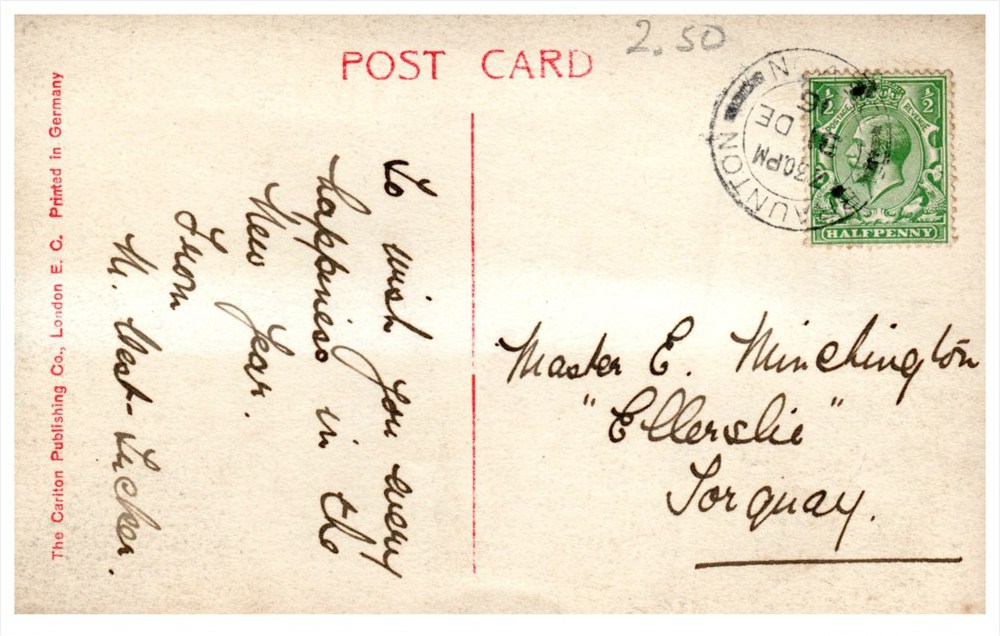 2.50
POST CARD
The Carlton Publishing Co., London E. C. Printed in Germany
To wish you every
happiness in the
New Year.
From
M. West-Tucker.
TAUNTON
.30PM
DE
½ ½
POSTAGE REVENUE
HALFPENNY
Master E. Minchington
"Ellerslie"
Torquay.